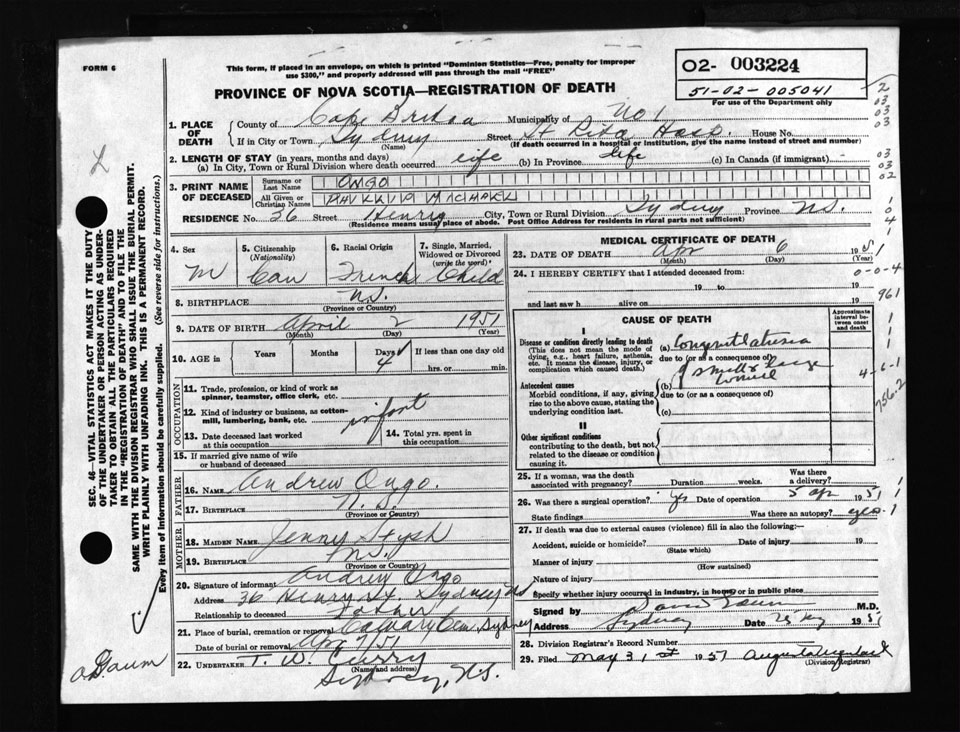 FORM 6
This form, if placed in an envelope, on which is printed "Dominion Statistics—Free, penalty for improper
use $300," and properly addressed will pass through the mail "FREE"
02- 003224
51-02-005041
For use of the Department only
PROVINCE OF NOVA SCOTIA—REGISTRATION OF DEATH
1. PLACE OF DEATH
County of Cape Breton Municipality of No 1
If in City or Town Sydney Street St Rita Hosp. House No.
(Name) (If death occurred in a hospital or institution, give the name instead of street and number)
2. LENGTH OF STAY (in years, months and days)
(a) In City, Town or Rural Division where death occurred life (b) In Province life (c) In Canada (if immigrant)
3. PRINT NAME OF DECEASED
Surname or Last Name ONGO
All Given or Christian Names MICHAEL
RESIDENCE No. 36 Street Henry City, Town or Rural Division Sydney Province N.S.
(Residence means usual place of abode. Post Office Address for residents in rural parts not sufficient)
4. Sex M
5. Citizenship (Nationality) Can
6. Racial Origin French
7. Single, Married, Widowed or Divorced (write the word) Child
8. BIRTHPLACE N.S.
(Province or Country)
9. DATE OF BIRTH April 2 1951
(Month) (Day) (Year)
10. AGE in Years Months Days 4 If less than one day old hrs. or min.
OCCUPATION
11. Trade, profession, or kind of work as spinner, teamster, office clerk, etc.
12. Kind of industry or business, as cotton-mill, lumbering, bank, etc. infant
13. Date deceased last worked at this occupation
14. Total yrs. spent in this occupation
15. If married give name of wife or husband of deceased
FATHER
16. NAME Andrew Ongo.
17. BIRTHPLACE N.S.
(Province or Country)
MOTHER
18. MAIDEN NAME Jenny
19. BIRTHPLACE N.S.
(Province or Country)
20. Signature of informant Andrew Ongo
Address 36 Henry St. Sydney NS
Relationship to deceased Father
21. Place of burial, cremation or removal Calvary Cem Sydney
Date of burial or removal Apr 7/51
22. UNDERTAKER T. W. Curry
(Name and address)
Sydney, N.S.
MEDICAL CERTIFICATE OF DEATH
23. DATE OF DEATH Apr 6 1951
(Month) (Day) (Year)
24. I HEREBY CERTIFY that I attended deceased from:
19 to 19
and last saw h alive on 19
CAUSE OF DEATH
Approximate interval between onset and death
I
Disease or condition directly leading to death
(This does not mean the mode of dying, e.g., heart failure, asthenia, etc. It means the disease, injury, or complication which caused death.)
(a) Congenital atresia
due to (or as a consequence of)
Antecedent causes
Morbid conditions, if any, giving rise to the above cause, stating the underlying condition last.
(b) small & large
due to (or as a consequence of)
(c)
II
Other significant conditions
contributing to the death, but not related to the disease or condition causing it.
25. If a woman, was the death associated with pregnancy? Duration weeks. Was there a delivery?
26. Was there a surgical operation? yes Date of operation 5 ap 1951
State findings Was there an autopsy? yes
27. If death was due to external causes (violence) fill in also the following:—
Accident, suicide or homicide? Date of injury 19
(State which)
Manner of injury
(How sustained)
Nature of injury
Specify whether injury occurred in industry, in home, or in public place
Signed by M.D.
Address Sydney Date 1951
28. Division Registrar's Record Number
29. Filed May 31st 1951 Augusta
(Division Registrar)
SEC. 46—VITAL STATISTICS ACT MAKES IT THE DUTY
OF THE UNDERTAKER OR PERSON ACTING AS UNDER-
TAKER TO OBTAIN ALL THE PARTICULARS REQUIRED
IN THE "REGISTRATION OF DEATH" AND TO FILE THE
SAME WITH THE DIVISION REGISTRAR WHO SHALL ISSUE THE BURIAL PERMIT.
WRITE PLAINLY WITH UNFADING INK. THIS IS A PERMANENT RECORD.
Every item of information should be carefully supplied. (See reverse side for instructions.)
2
03
03
03
03
03
02
0-0-4
961
4-6-1
756.2